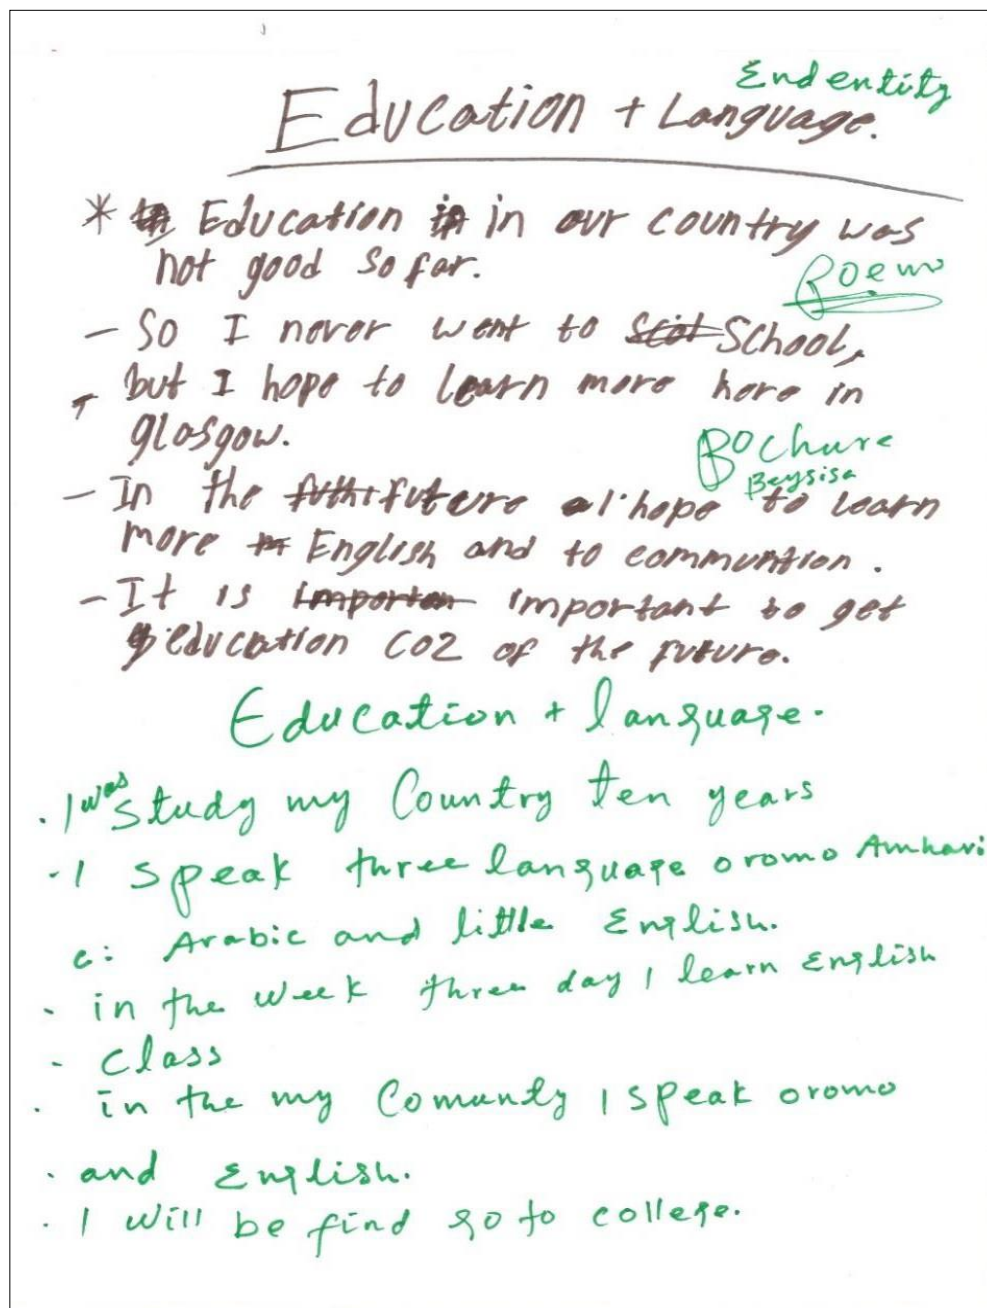 End entity
Education + Language.
* Education in in our country was
not good so far.
Poem
- So I never went to School,
- but I hope to learn more here in
glasgow.
Bochure
Beysisa
- In the future I hope to learn
more English and to communtion.
- It is importan important to get
education coz of the future.
Education + language.
. I was Study my Country ten years
. I speak three language oromo Amhari
c: Arabic and little English.
- in the week three day I learn English
- class
. in the my Comunty I speak oromo
. and English.
. I will be find go to college.